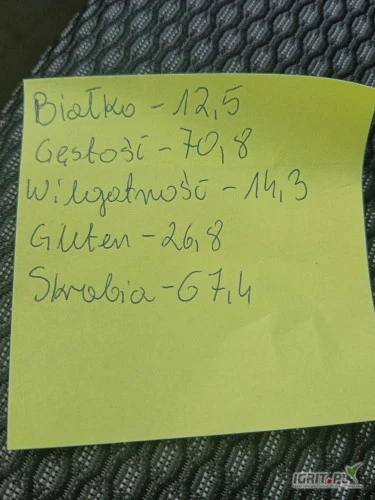 Białko - 12,5
Gęstość - 70,8
Wilgotność - 14,3
Gluten - 26,8
Skrobia - 67,4
IGRIT.PL